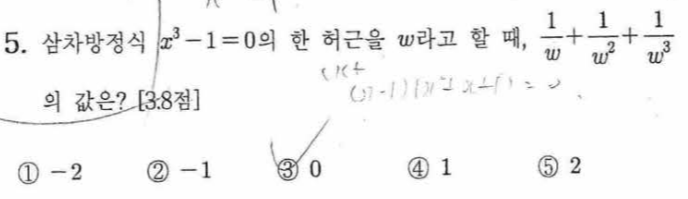 5. 삼차방정식 x³-1=0의 한 허근을 w라고 할 때, 1/w + 1/w² + 1/w³
(x-1)(x²+x+1)=0
의 값은? [3.8점]
① -2 ② -1 ③ 0 ④ 1 ⑤ 2